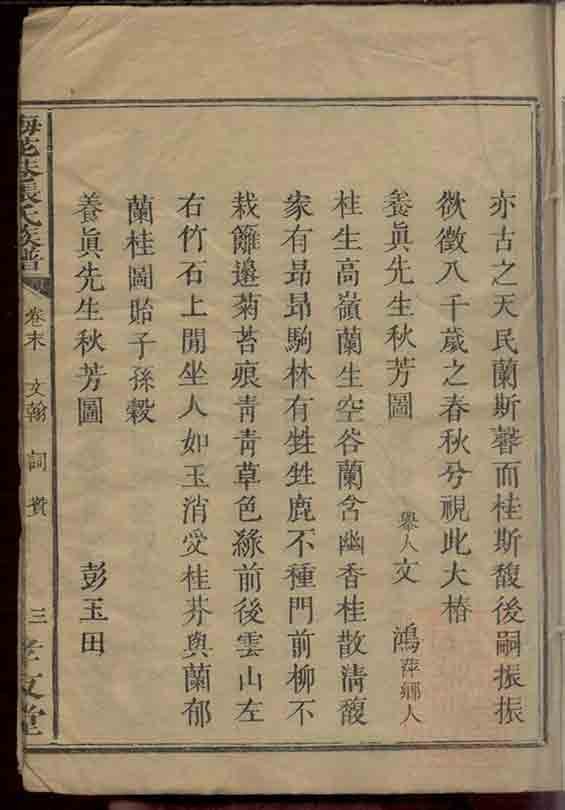 亦古之天民蘭斯馨而桂斯馥後嗣振振
欲徵八千歲之春秋兮視此大椿
養眞先生秋芳圖 舉人文 鴻萍鄉人
桂生高嶺蘭生空谷蘭含幽香桂散淸馥
家有昻昻駒林有甡甡鹿不種門前柳不
栽籬邉菊苔痕靑靑草色綠前後雲山左
右竹石上閒坐人如玉消受桂芬與蘭郁
蘭桂圖貽子孫穀
養眞先生秋芳圖 彭玉田
梅花巷張氏族譜 卷末 文翰 詞贊 三 孝友堂